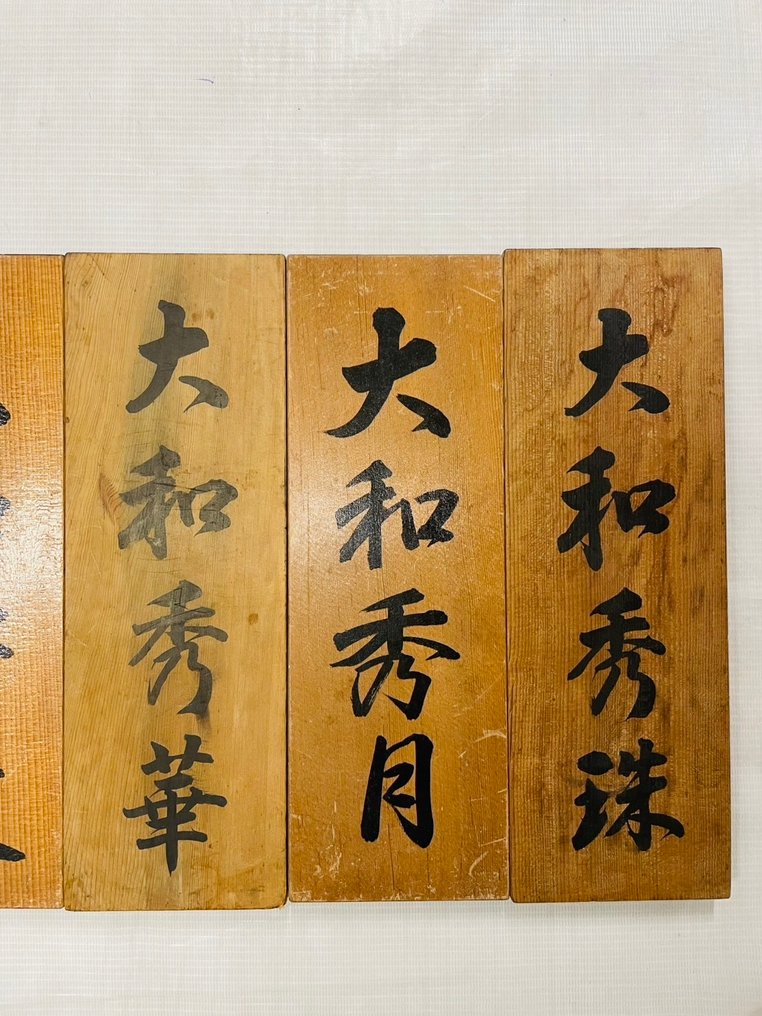 大和秀珠
大和秀月
大和秀華